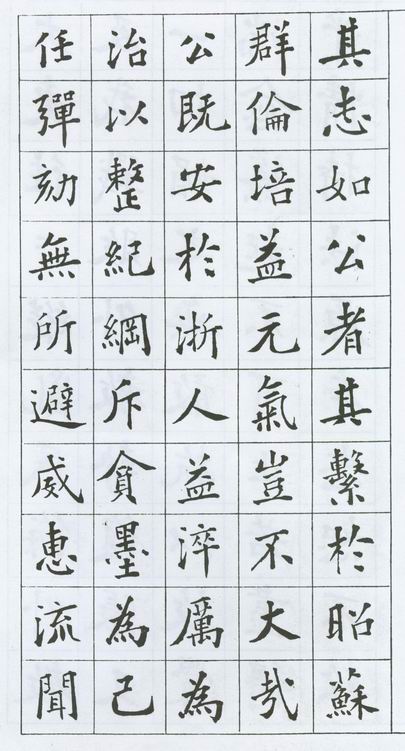 其志如公者其繫於昭蘇
群倫培益元氣豈不大哉
公既安於浙人益淬厲為
治以整紀綱斥貪墨為己
任彈劾無所避威惠流聞